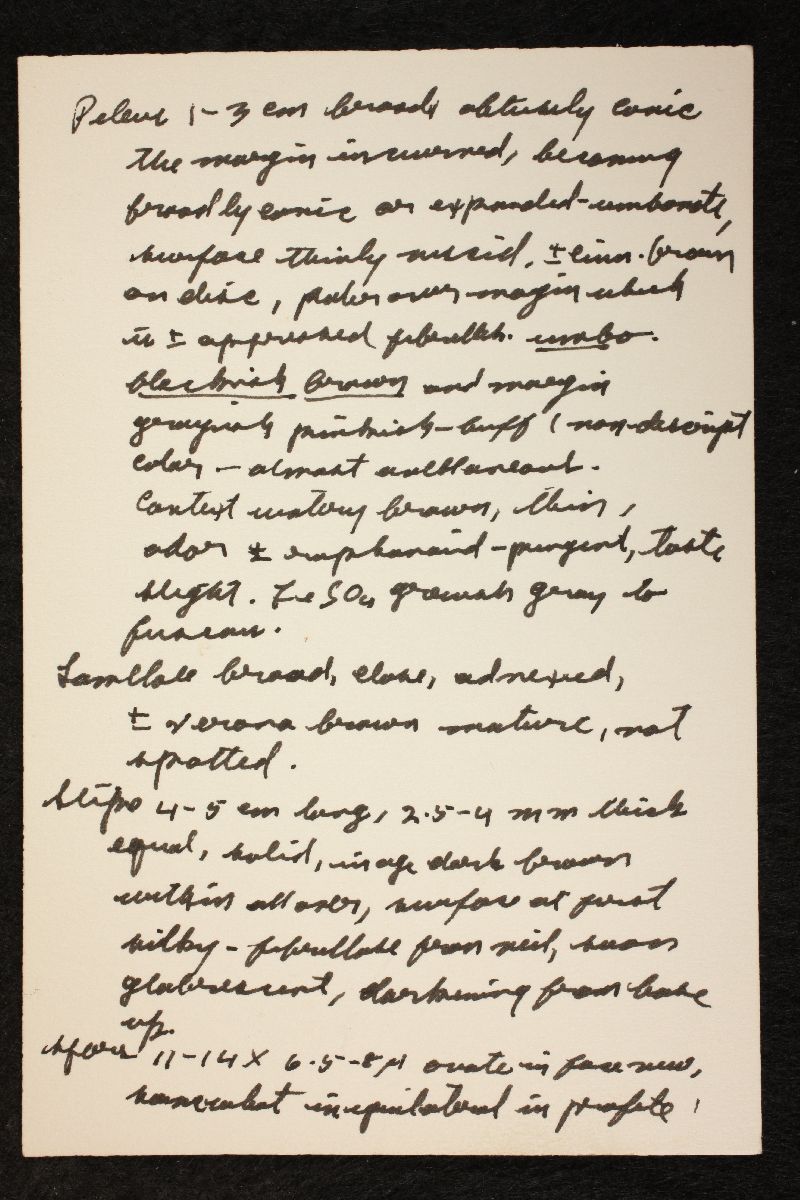 Pileus 1-3 cm broad, obtusely conic
the margin incurved, becoming
broadly conic or expanded-umbonate,
surface thinly viscid, ± cinn. brown
on disc, paler over margin which
is ± appressed fibrillose. umbo.
blackish brown and margin
grayish pinkish-buff (non-descript
color - almost avellaneous.
Context watery brown, thin,
odor ± raphanoid-pungent, taste
slight. FeSO4 greenish gray to
fuscous.
Lamellae broad, close, adnexed,
± verona brown mature, not
spotted.
Stipe 4-5 cm long, 2.5-4 mm thick
equal, solid, in age dark brown
within all over, surface at first
silky-fibrillose from veil, soon
glabrescent, darkening from base
up.
Spores 11-14 X 6.5-8 µ ovate in face view,
somewhat inequilateral in profile,